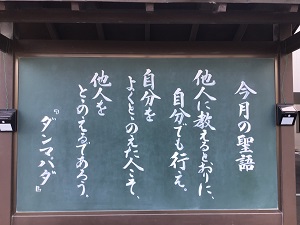 今月の聖語
他人に教えるとおりに、
自分でも行え。
自分を
よくととのえた人こそ、
他人を
ととのえるであろう。
ダンマパダ